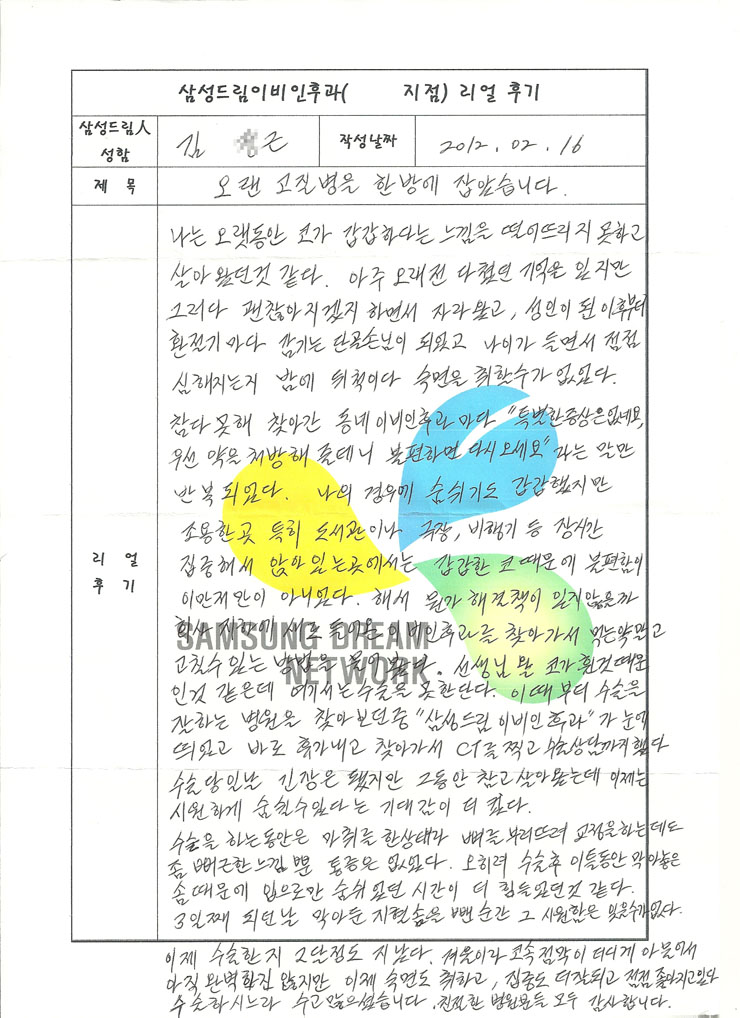 삼성드림이비인후과( 지점) 리얼 후기
삼성드림人
성함
김 근
작성날짜
2012. 02. 16
제 목
오랜 고질병을 한방에 잡았습니다.
리 얼
후 기
나는 오랫동안 코가 갑갑하다는 느낌을 떨어뜨리지 못하고
살아 왔던것 같다. 아주 오래전 다쳤던 기억은 있지만
그러다 괜찮아지겠지 하면서 자라왔고, 성인이 된 이후부터
환절기 마다 감기는 단골손님이 되었고 나이가 들면서 점점
심해지는지 밤에 뒤척이다 숙면을 취할수가 없었다.
참다 못해 찾아간 동네 이비인후과 마다 "특별한증상은없네요,
우선 약을 처방해 줄테니 불편하면 다시 오세요" 라는 말만
반복 되었다. 나의 경우에 숨쉬기도 갑갑했지만
조용한곳 특히 도서관이나 극장, 비행기 등 장시간
집중해서 앉아 있는곳에서는 갑갑한 코 때문에 불편함이
이만저만이 아니었다. 해서 뭔가 해결책이 있지않을까
회사 지하에 새로 들어온 이비인후과를 찾아가서 먹는약말고
고칠수 있는 방법을 물어 봤다. 선생님 왈 코가 휜것 때문
인것 같은데 여기서는 수술을 못한단다. 이때부터 수술을
잘하는 병원을 찾아보던중 "삼성드림 이비인후과"가 눈에
띄었고 바로 휴가내고 찾아가서 CT를 찍고 수술상담까지 했다
수술 당일날 긴장은 됐지만 그동안 참고 살아왔는데 이제는
시원하게 숨쉴수있다는 기대감이 더 컸다.
수술을 하는동안은 마취를 한상태라 뼈를 부러뜨려 교정을하는데도
좀 뻐근한느낌 뿐 통증은 없었다. 오히려 수술후 이틀동안 막아놓은
솜 때문에 입으로만 숨쉬었던 시간이 더 힘들었던것 같다.
3일째 되던날 막아둔 지혈솜을 뺀 순간 그 시원함은 잊을수가없다.
이제 수술한지 2달정도 지났다. 겨울이라 코속 점막이 더디게 아물어서
아직 완벽하진 않지만 이제 숙면도 취하고, 집중도 더잘되고 점점 좋아지고있다
수술하시느라 수고 많으셨습니다. 친절한 병원분들 모두 감사합니다.
SAMSUNG DREAM
NETWORK